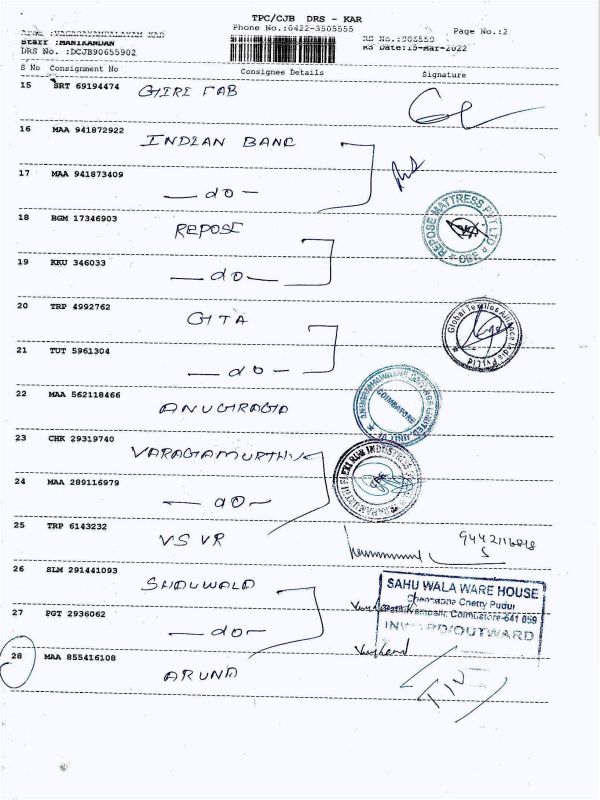 TPC/CJB DRS - KAR
Phone No.:0422-3505555
Page No.:2
Staff :MANIKANDAN
RS No.:906559
DRS No. :DCJB90655902
RS Date:15-Mar-2022
S No Consignment No Consignee Details Signature
15 SRT 69194474 GIRI FAB
16 MAA 941872922 INDIAN BANK
17 MAA 941873409 — do —
18 BGM 17346903 REPOSE
REPOSE MATTRESS PVT LTD * CBE *
19 KKU 346033 — do —
20 TRP 4992762 GITA
Global Textiles Alliance India Pvt Ltd
21 TUT 5961304 — do —
22 MAA 562118466 ANUGRAGA
COIMBATORE
23 CHK 29319740 VARAGAMURTHY
24 MAA 289116979 — do —
25 TRP 6143232 VSVR
26 SLM 291441093 SHAUWALA
SAHU WALA WARE HOUSE
Coimbatore-641 059
INWARD/OUTWARD
27 PGT 2936062 — do —
28 MAA 855416108 ARUNA